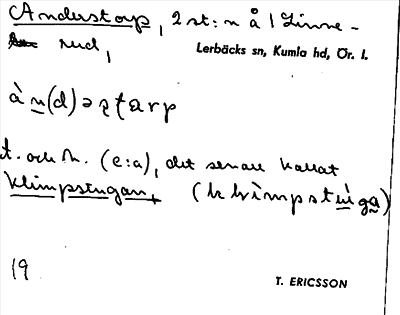 Anderstorp, 2 st: n å 1 Linne-
rud,
Lerbäcks sn, Kumla hd, Ör. l.
t. och h. (e:a), det senare kallat
Klimpstugan,
19
T. ERICSSON